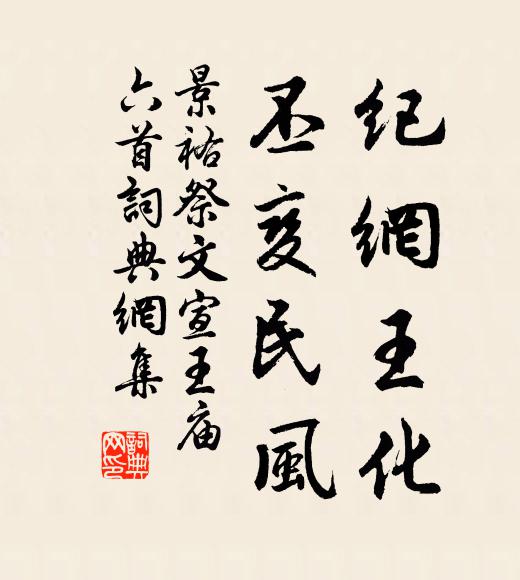 紀網王化
丕變民風
景祐祭文宣王庙
六首詞典網集
詞典网印